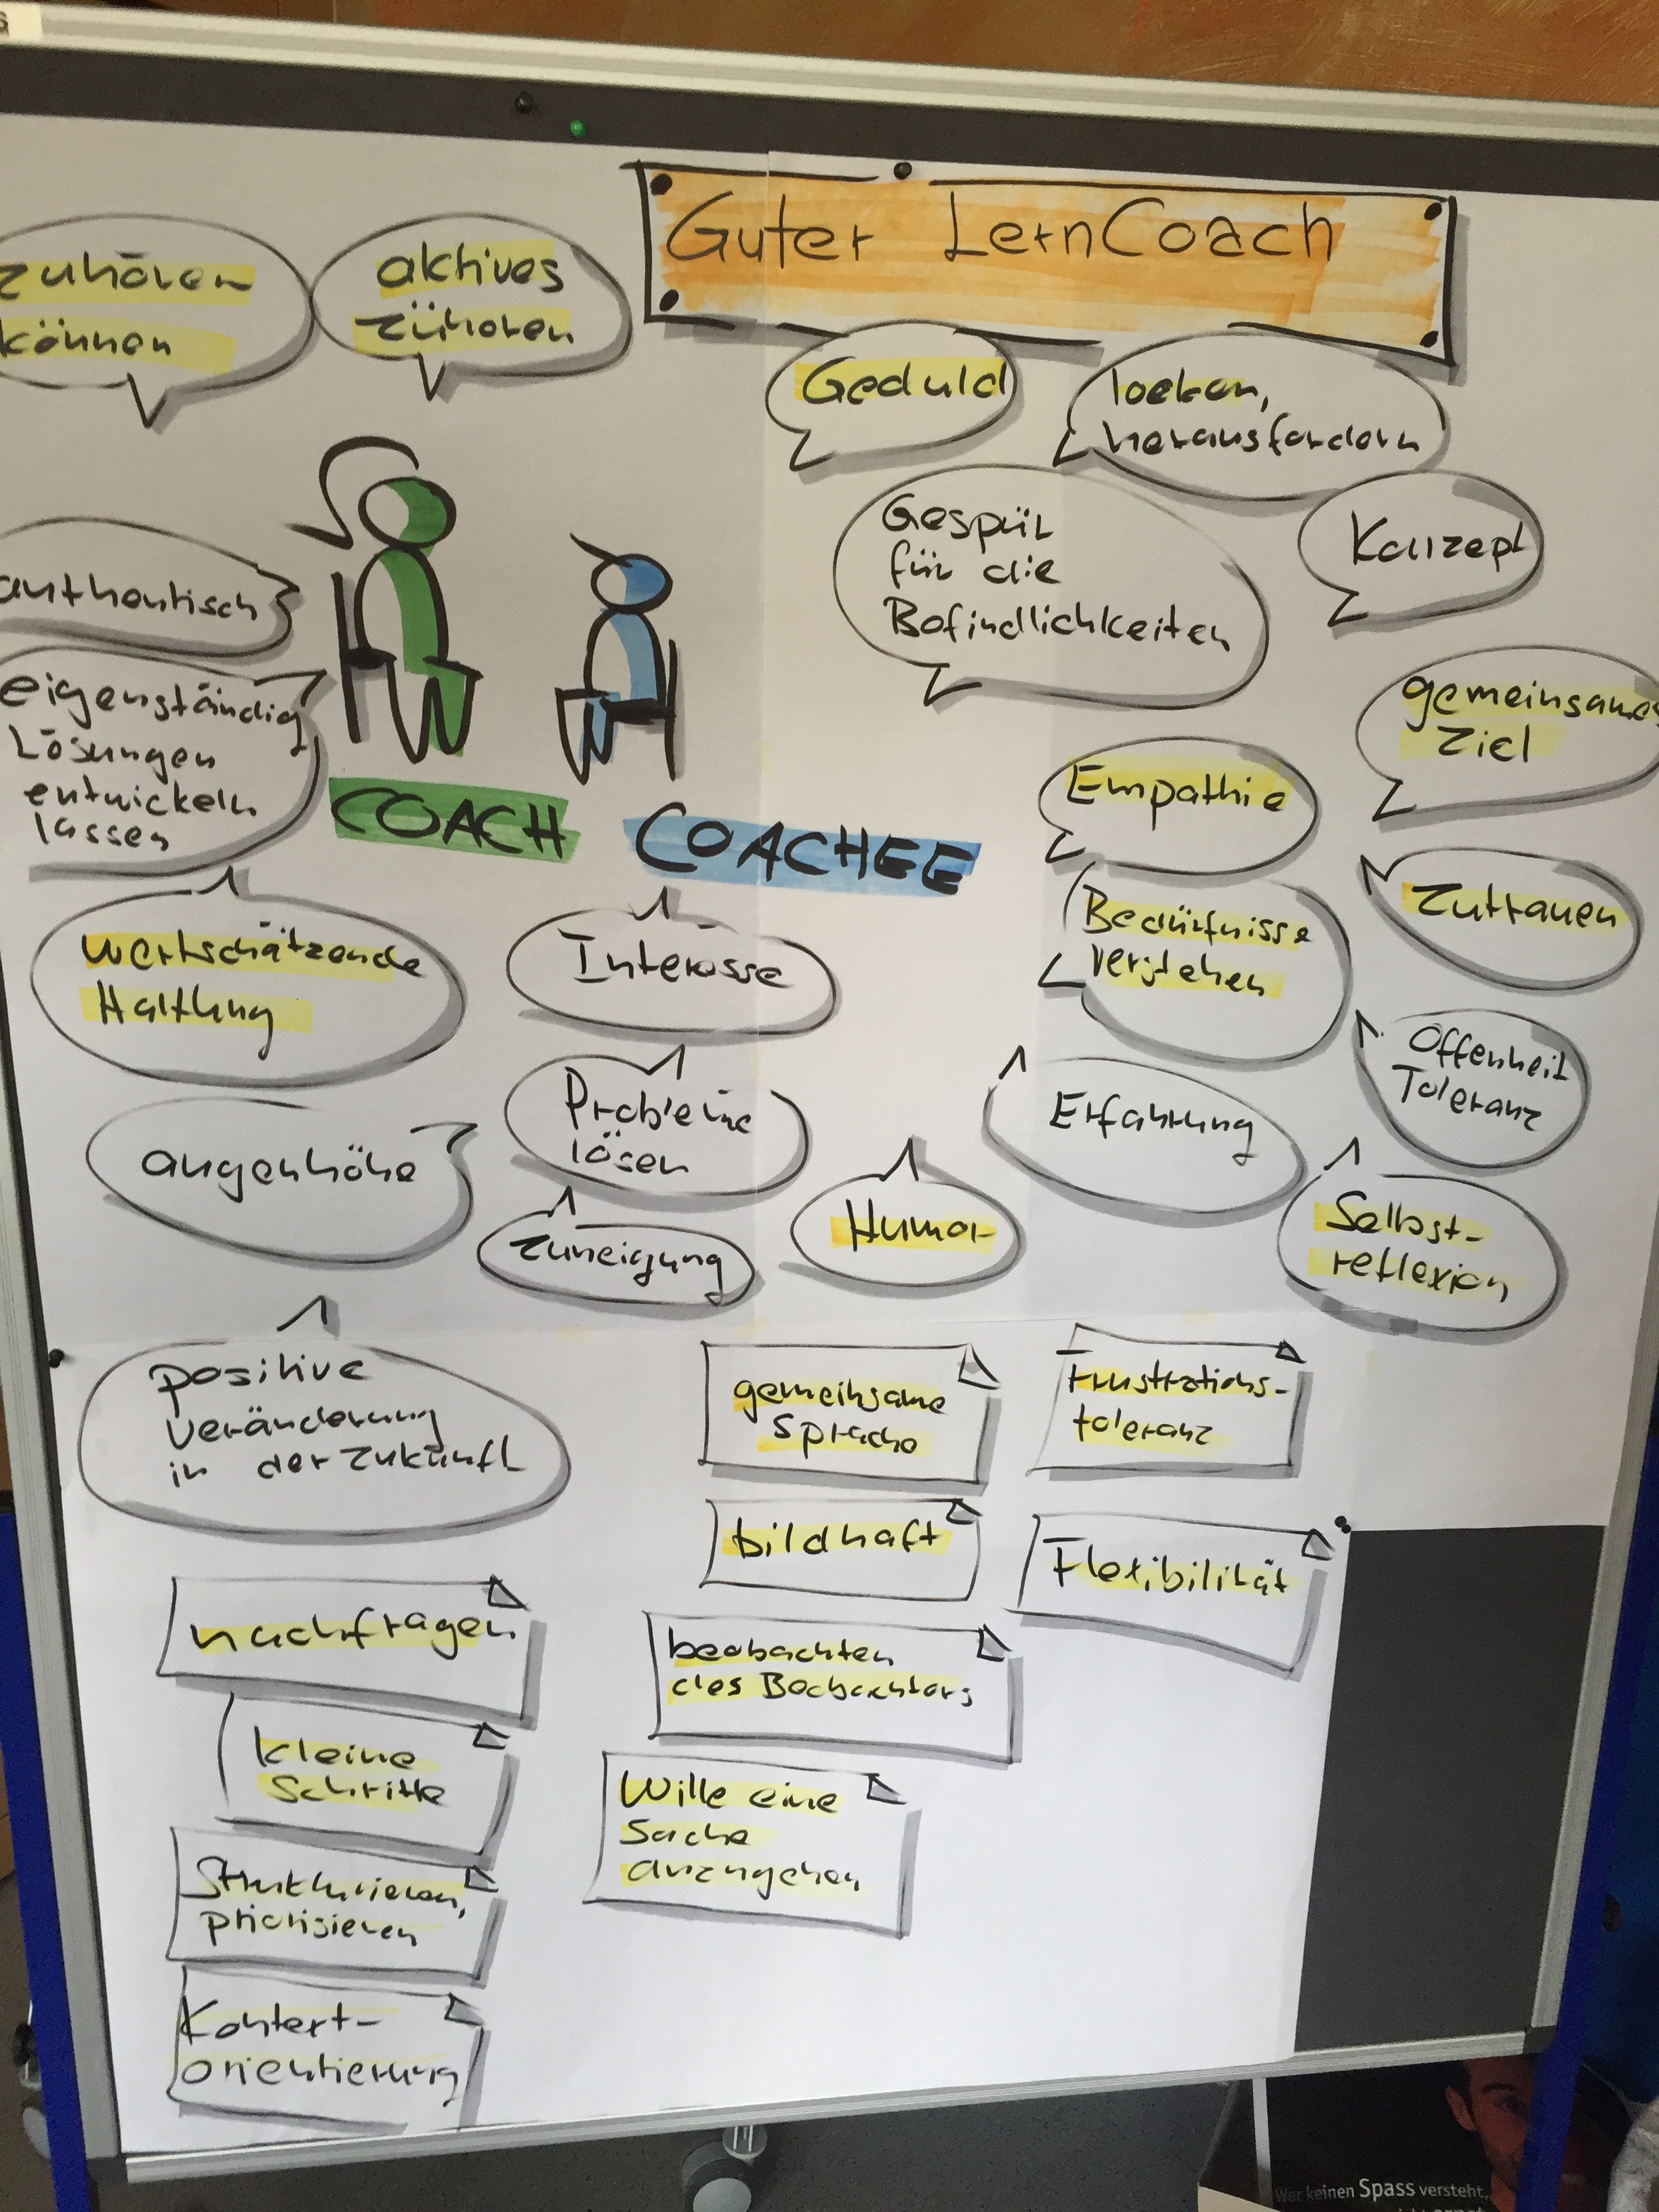 Guter LernCoach
zuhören
können
aktives
zuhören
Geduld
locken,
herausfordern
Gespür
für die
Befindlichkeiten
Konzept
authentisch
eigenständig
Lösungen
entwickeln
lassen
COACH
COACHEE
gemeinsames
Ziel
Empathie
Bedürfnisse
verstehen
Zutrauen
wertschätzende
Haltung
Interesse
Offenheit
Toleranz
Probleme
lösen
Erfahrung
augenhöhe
Zuneigung
Humor
Selbst-
reflexion
positive
veränderung
in der Zukunft
gemeinsame
Sprache
Frustrations-
toleranz
bildhaft
Flexibilität
nachfragen
beobachten
des Beobachters
kleine
Schritte
Wille eine
Sache
anzugehen
Strukturieren,
priorisieren
Kontext-
orientierung
Wer keinen Spass versteht,